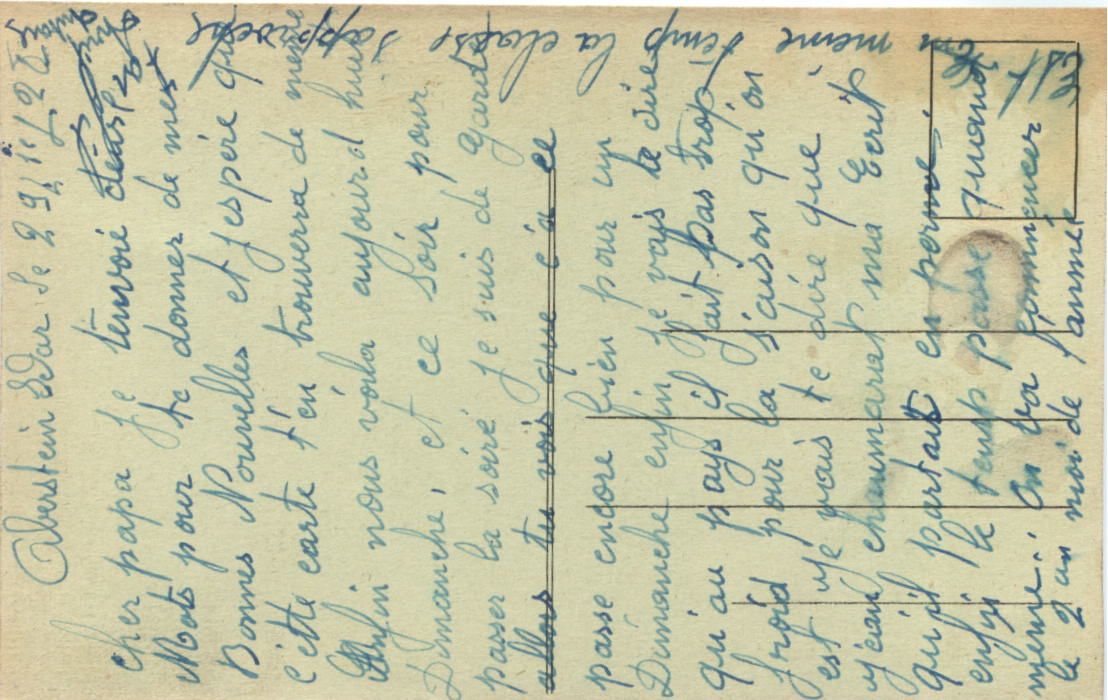 Oberstein Idar le 29 11 1925
Cher papa je t'envoié deus
Mots pour te donner de mes
Bonnes Nouvelles et j'espère que
c'ètte carte t'en trouvera de meme
Enfin nous voila aujourd hui
Dimanche, et ce soir pour
passer la soiré je suis de garde
allons tu vois que c'a ce
passe encore bien pour un
Dimanche enfin je vais te dire
qu'au pays il fait pas trop
froid pour la s'aison qu'on
est je vais te dire que
jéan chanmarat ma Ecrit
qu'il partait en perme
enfin le temps passe quand
meme: on va commencer
le 2 au moi de l'année
en meme temp la classe s'approche